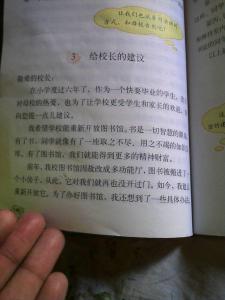 让我们也试着用这样的
方式，和母校告别吧！
3 给校长的建议
敬爱的校长：
在小学度过六年了，作为一个快要毕业的学生，
对母校的热爱，也为了让学校更受学生和家长的欢迎，
向您提一点儿建议。
我希望学校能重新开放图书馆。书是一切智慧的源
有了书，同学就像有了一座取之不尽、用之不竭的知
库，有了图书馆，我们就能得到更多的精神财富。
前年，我校图书馆因故改成多功能厅，图书被搬进了一
个小房子。从此，它对我们就再也没开过门。如今，我建
重新开放它。为了办好图书馆，我还想到了一些具体办
以上